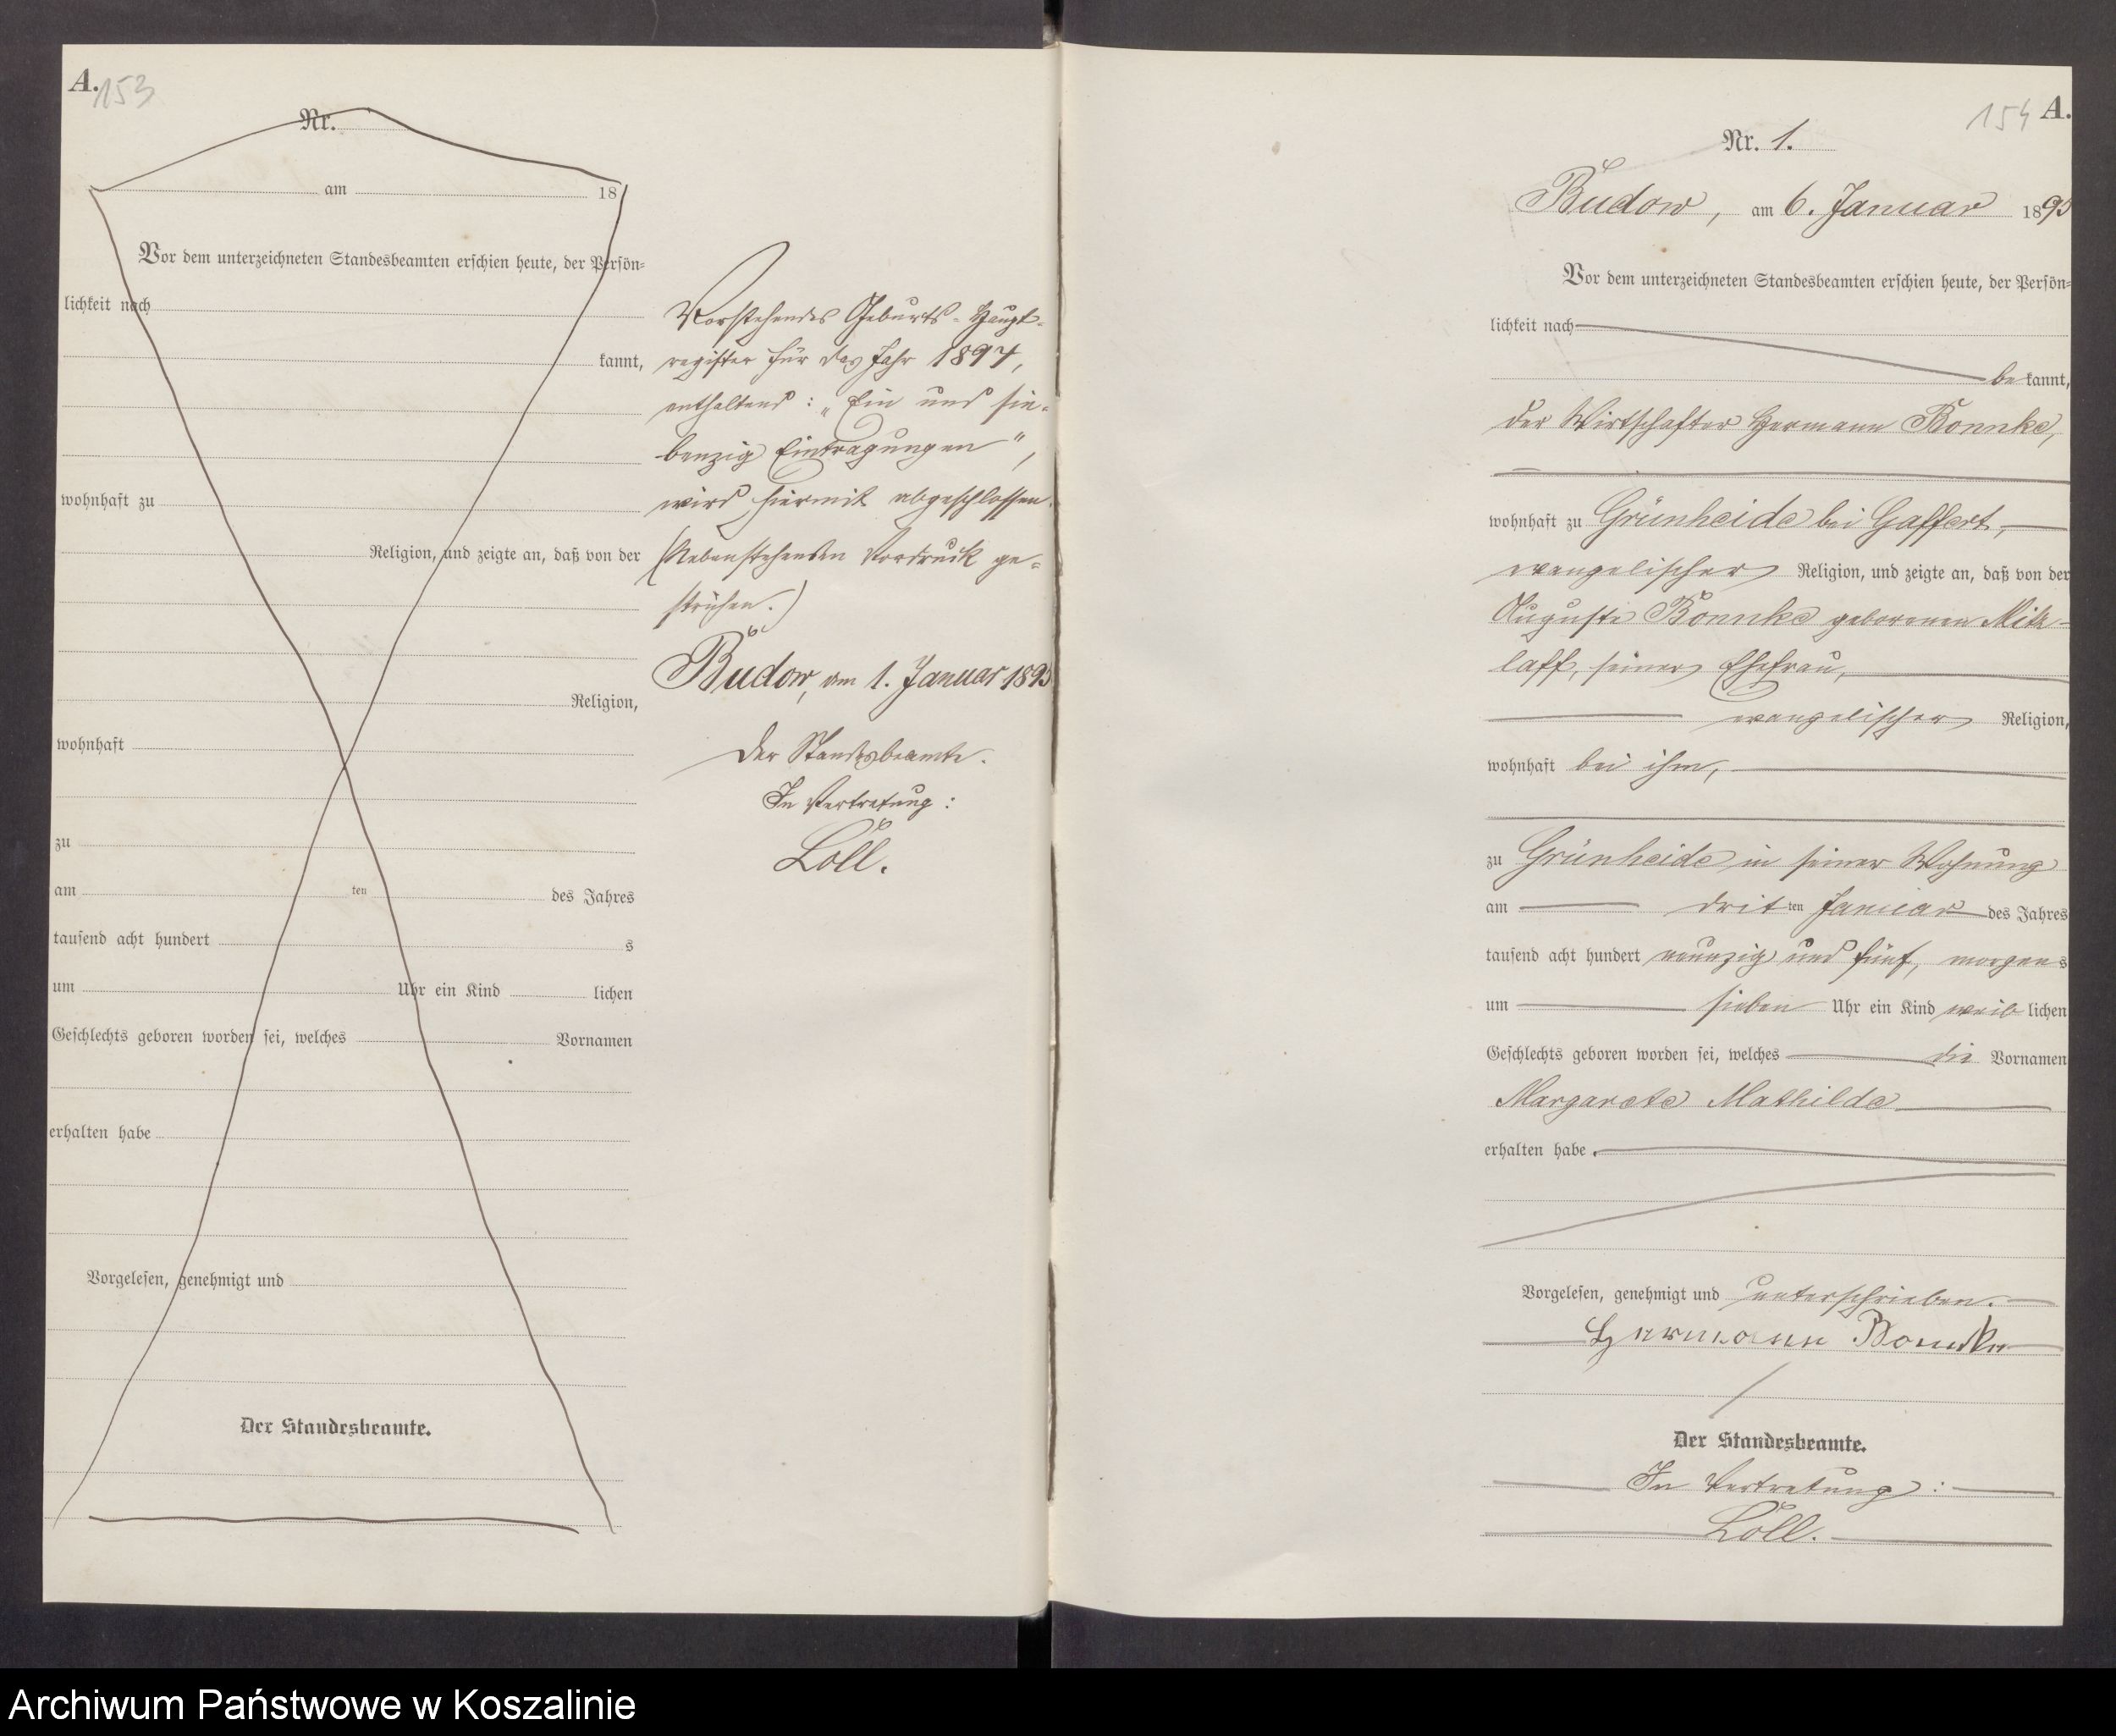 A. 153
Nr.
am 18
Vor dem unterzeichneten Standesbeamten erschien heute, der Persön-
lichkeit nach
kannt,
wohnhaft zu
Religion, und zeigte an, daß von der
Religion,
wohnhaft
zu
am ten des Jahres
tausend acht hundert s
um Uhr ein Kind lichen
Geschlechts geboren worden sei, welches Vornamen
erhalten habe
Vorgelesen, genehmigt und
Der Standesbeamte.
Vorstehendes Geburts-Haupt-
register für das Jahr 1894,
enthaltend: „Ein und sie-
benzig Eintragungen",
wird hiermit abgeschlossen.
(Nebenstehenden Vordruck ge-
strichen.)
Budow, am 1. Januar 1895
Der Standesbeamte.
In Vertretung:
Löll.
154 A.
Nr. 1.
Budow, am 6. Januar 1895
Vor dem unterzeichneten Standesbeamten erschien heute, der Persön-
lichkeit nach
be kannt,
der Wirtschafter Hermann Bonnke,
wohnhaft zu Grünheide bei Gaffert,
evangelischer Religion, und zeigte an, daß von der
Auguste Bonnke geborenen Mitz-
laff, seiner Ehefrau,
evangelischer Religion,
wohnhaft bei ihm,
zu Grünheide in seiner Wohnung
am drit ten Januar des Jahres
tausend acht hundert neunzig und fünf, morgens
um sieben Uhr ein Kind weib lichen
Geschlechts geboren worden sei, welches die Vornamen
Margarete Mathilde
erhalten habe.
Vorgelesen, genehmigt und unterschrieben.
Hermann Bonnke
Der Standesbeamte.
In Vertretung:
Löll.
Archiwum Państwowe w Koszalinie